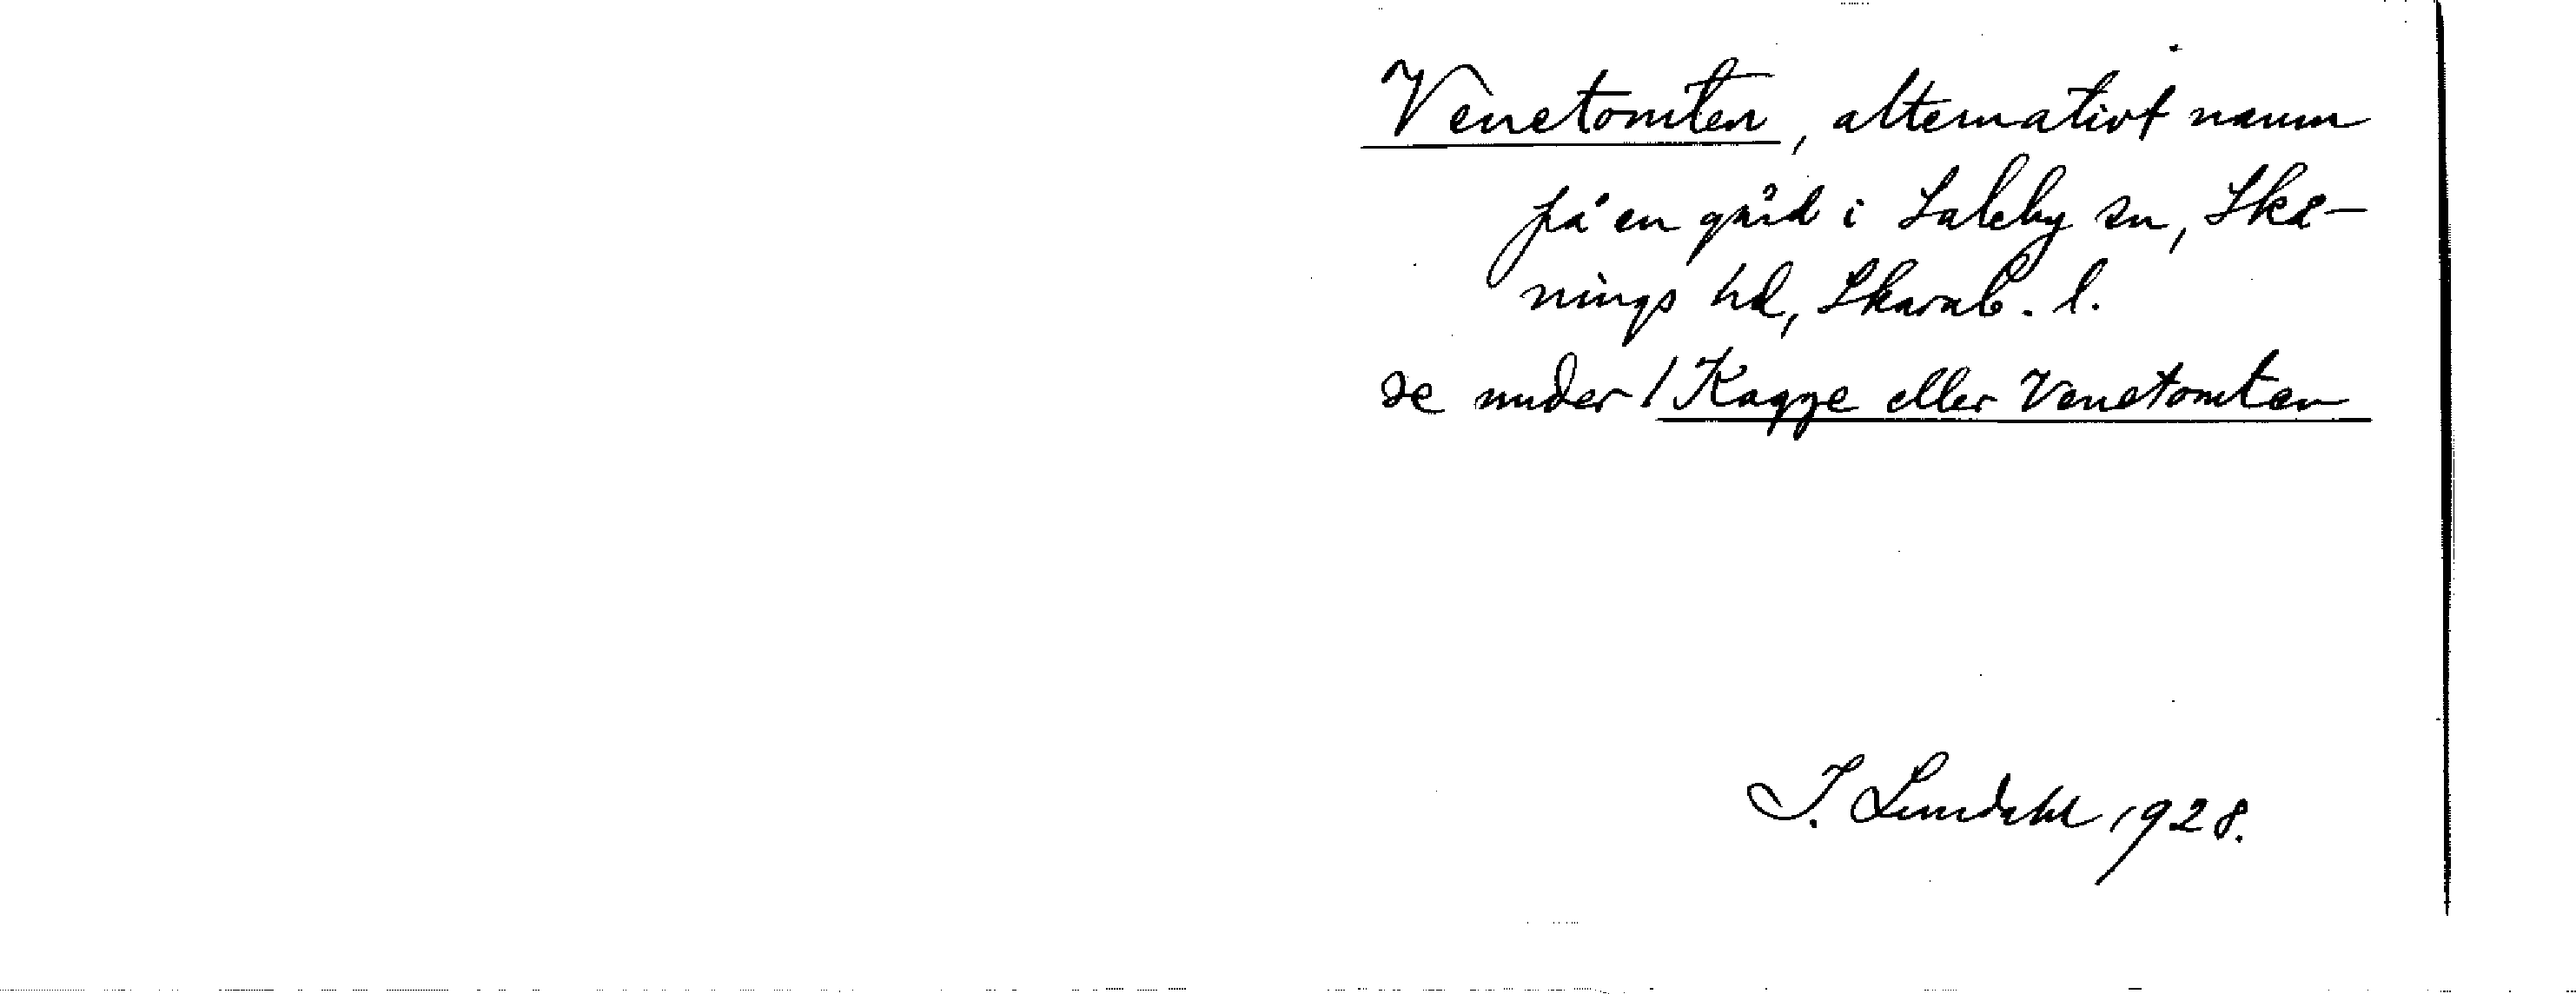 Venetomten, alternativt namn
på en gård i Saleby sn, Skå-
nings hd, Skarab. l.
se under / Kagge eller Venetomten
I. Lundahl 1928.